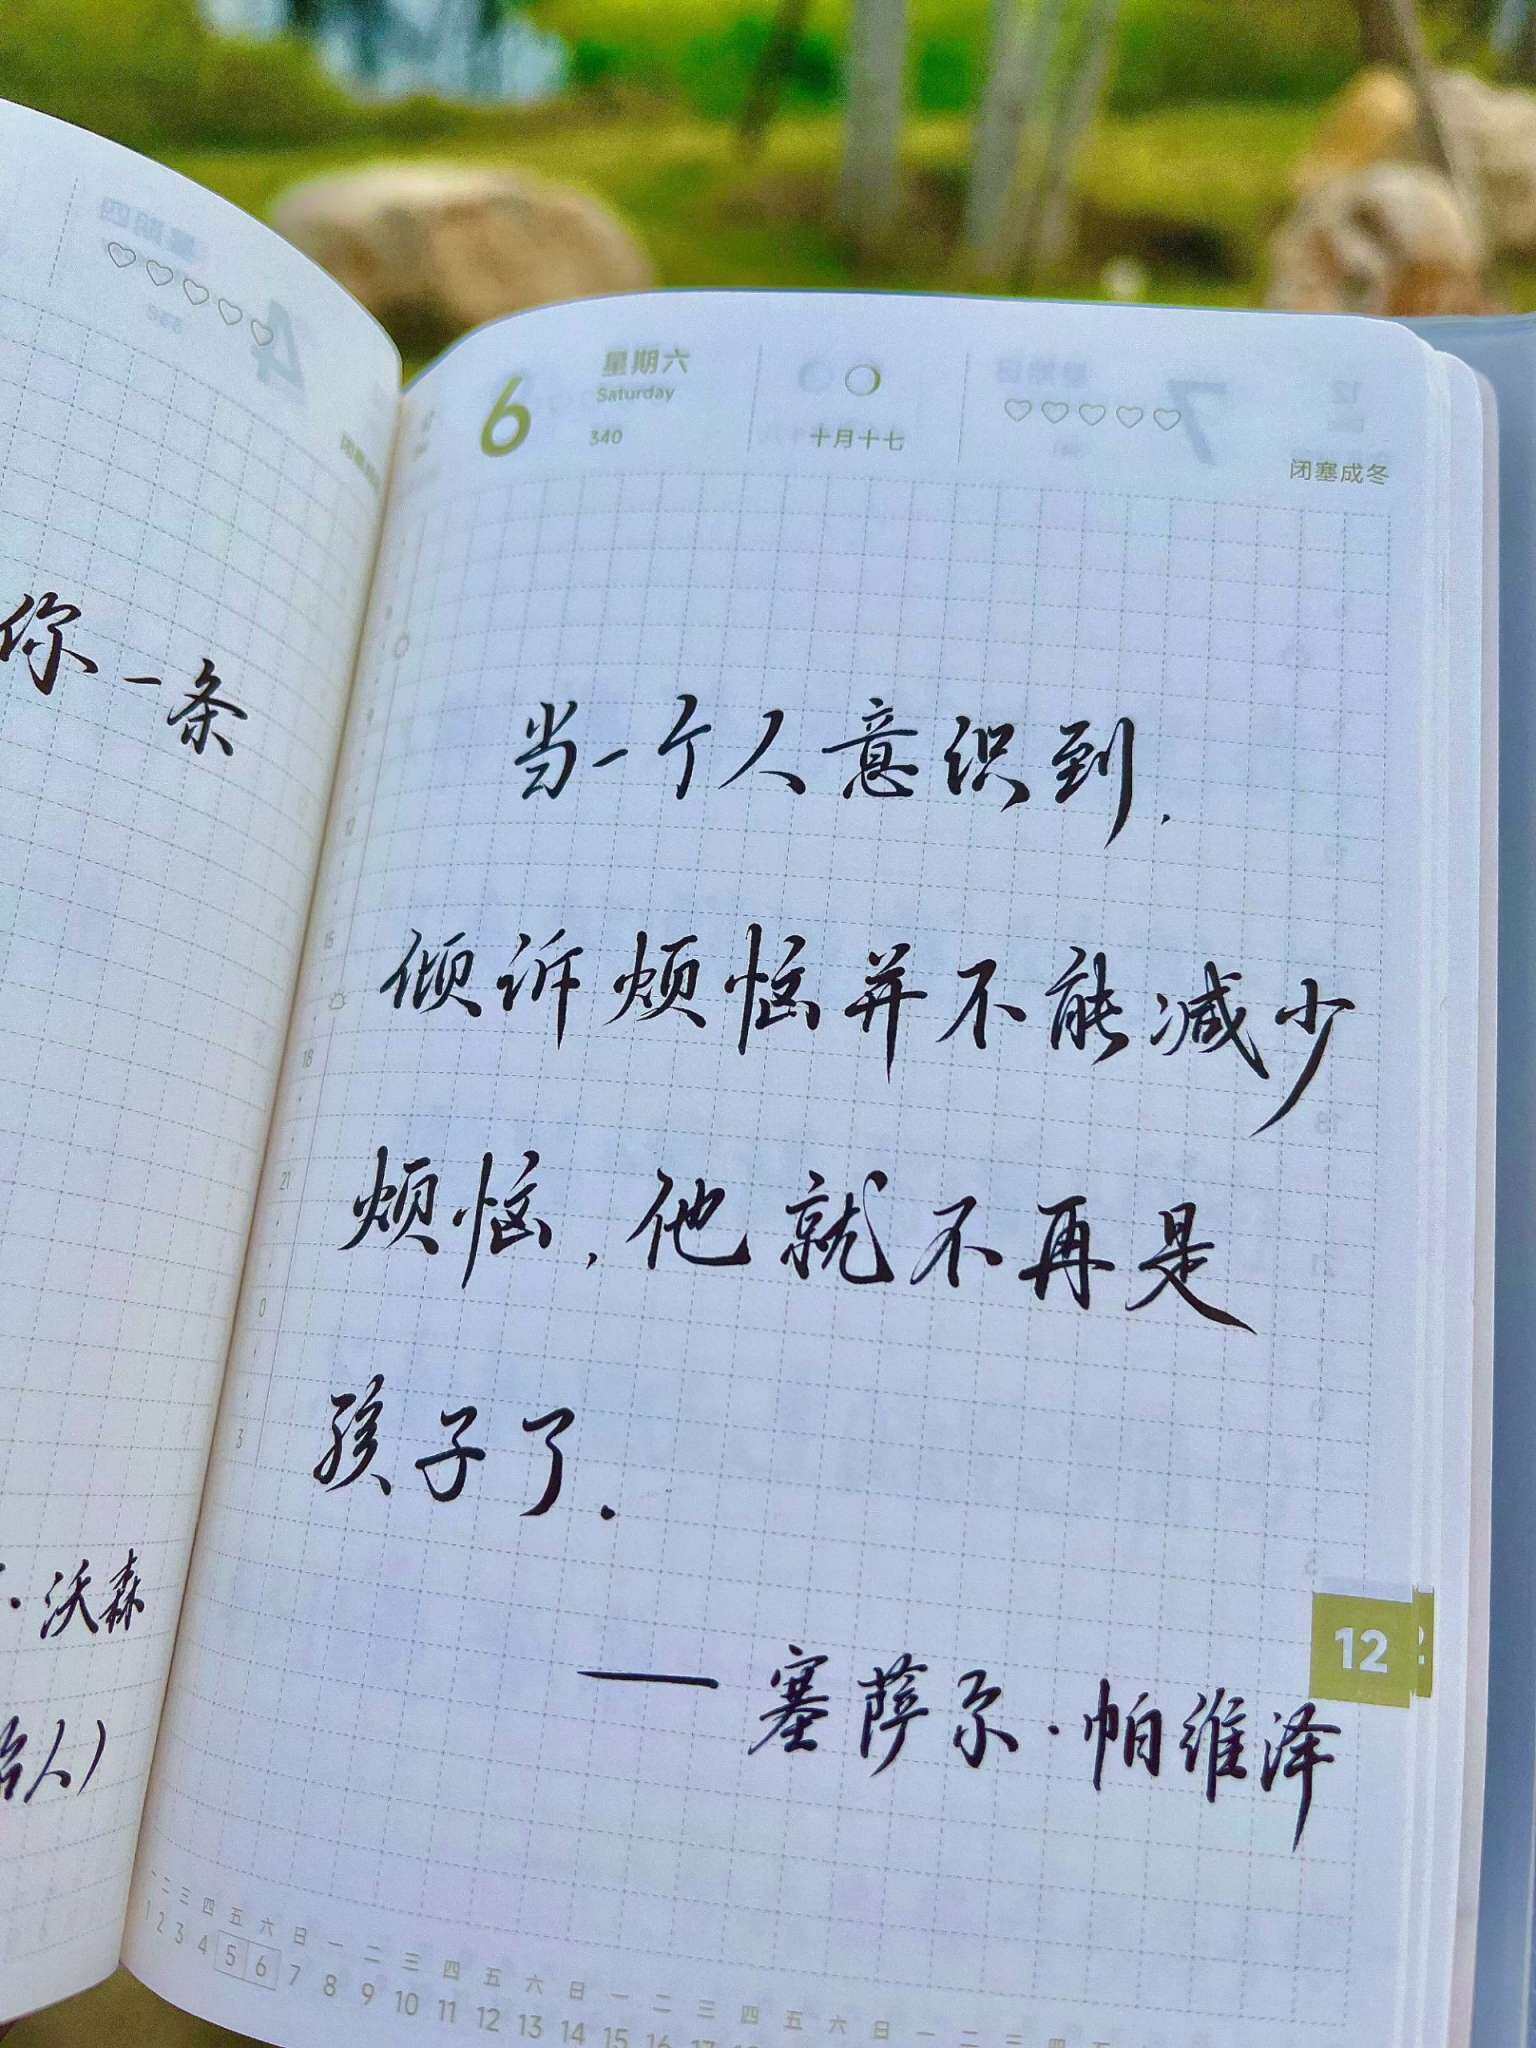 你一条
·沃森
人)
6
星期六
Saturday
340
十月十七
闭塞成冬
当一个人意识到,
倾诉烦恼并不能减少
烦恼,他就不再是
孩子了.
——塞萨尔·帕维泽
12
9
12
15
18
21
0
3
一 二 三 四 五 六 日 一 二 三 四 五 六 日 一 二 三 四 五 六 日 一 二 三 四 五
1 2 3 4 5 6 7 8 9 10 11 12 13 14 15 16 17